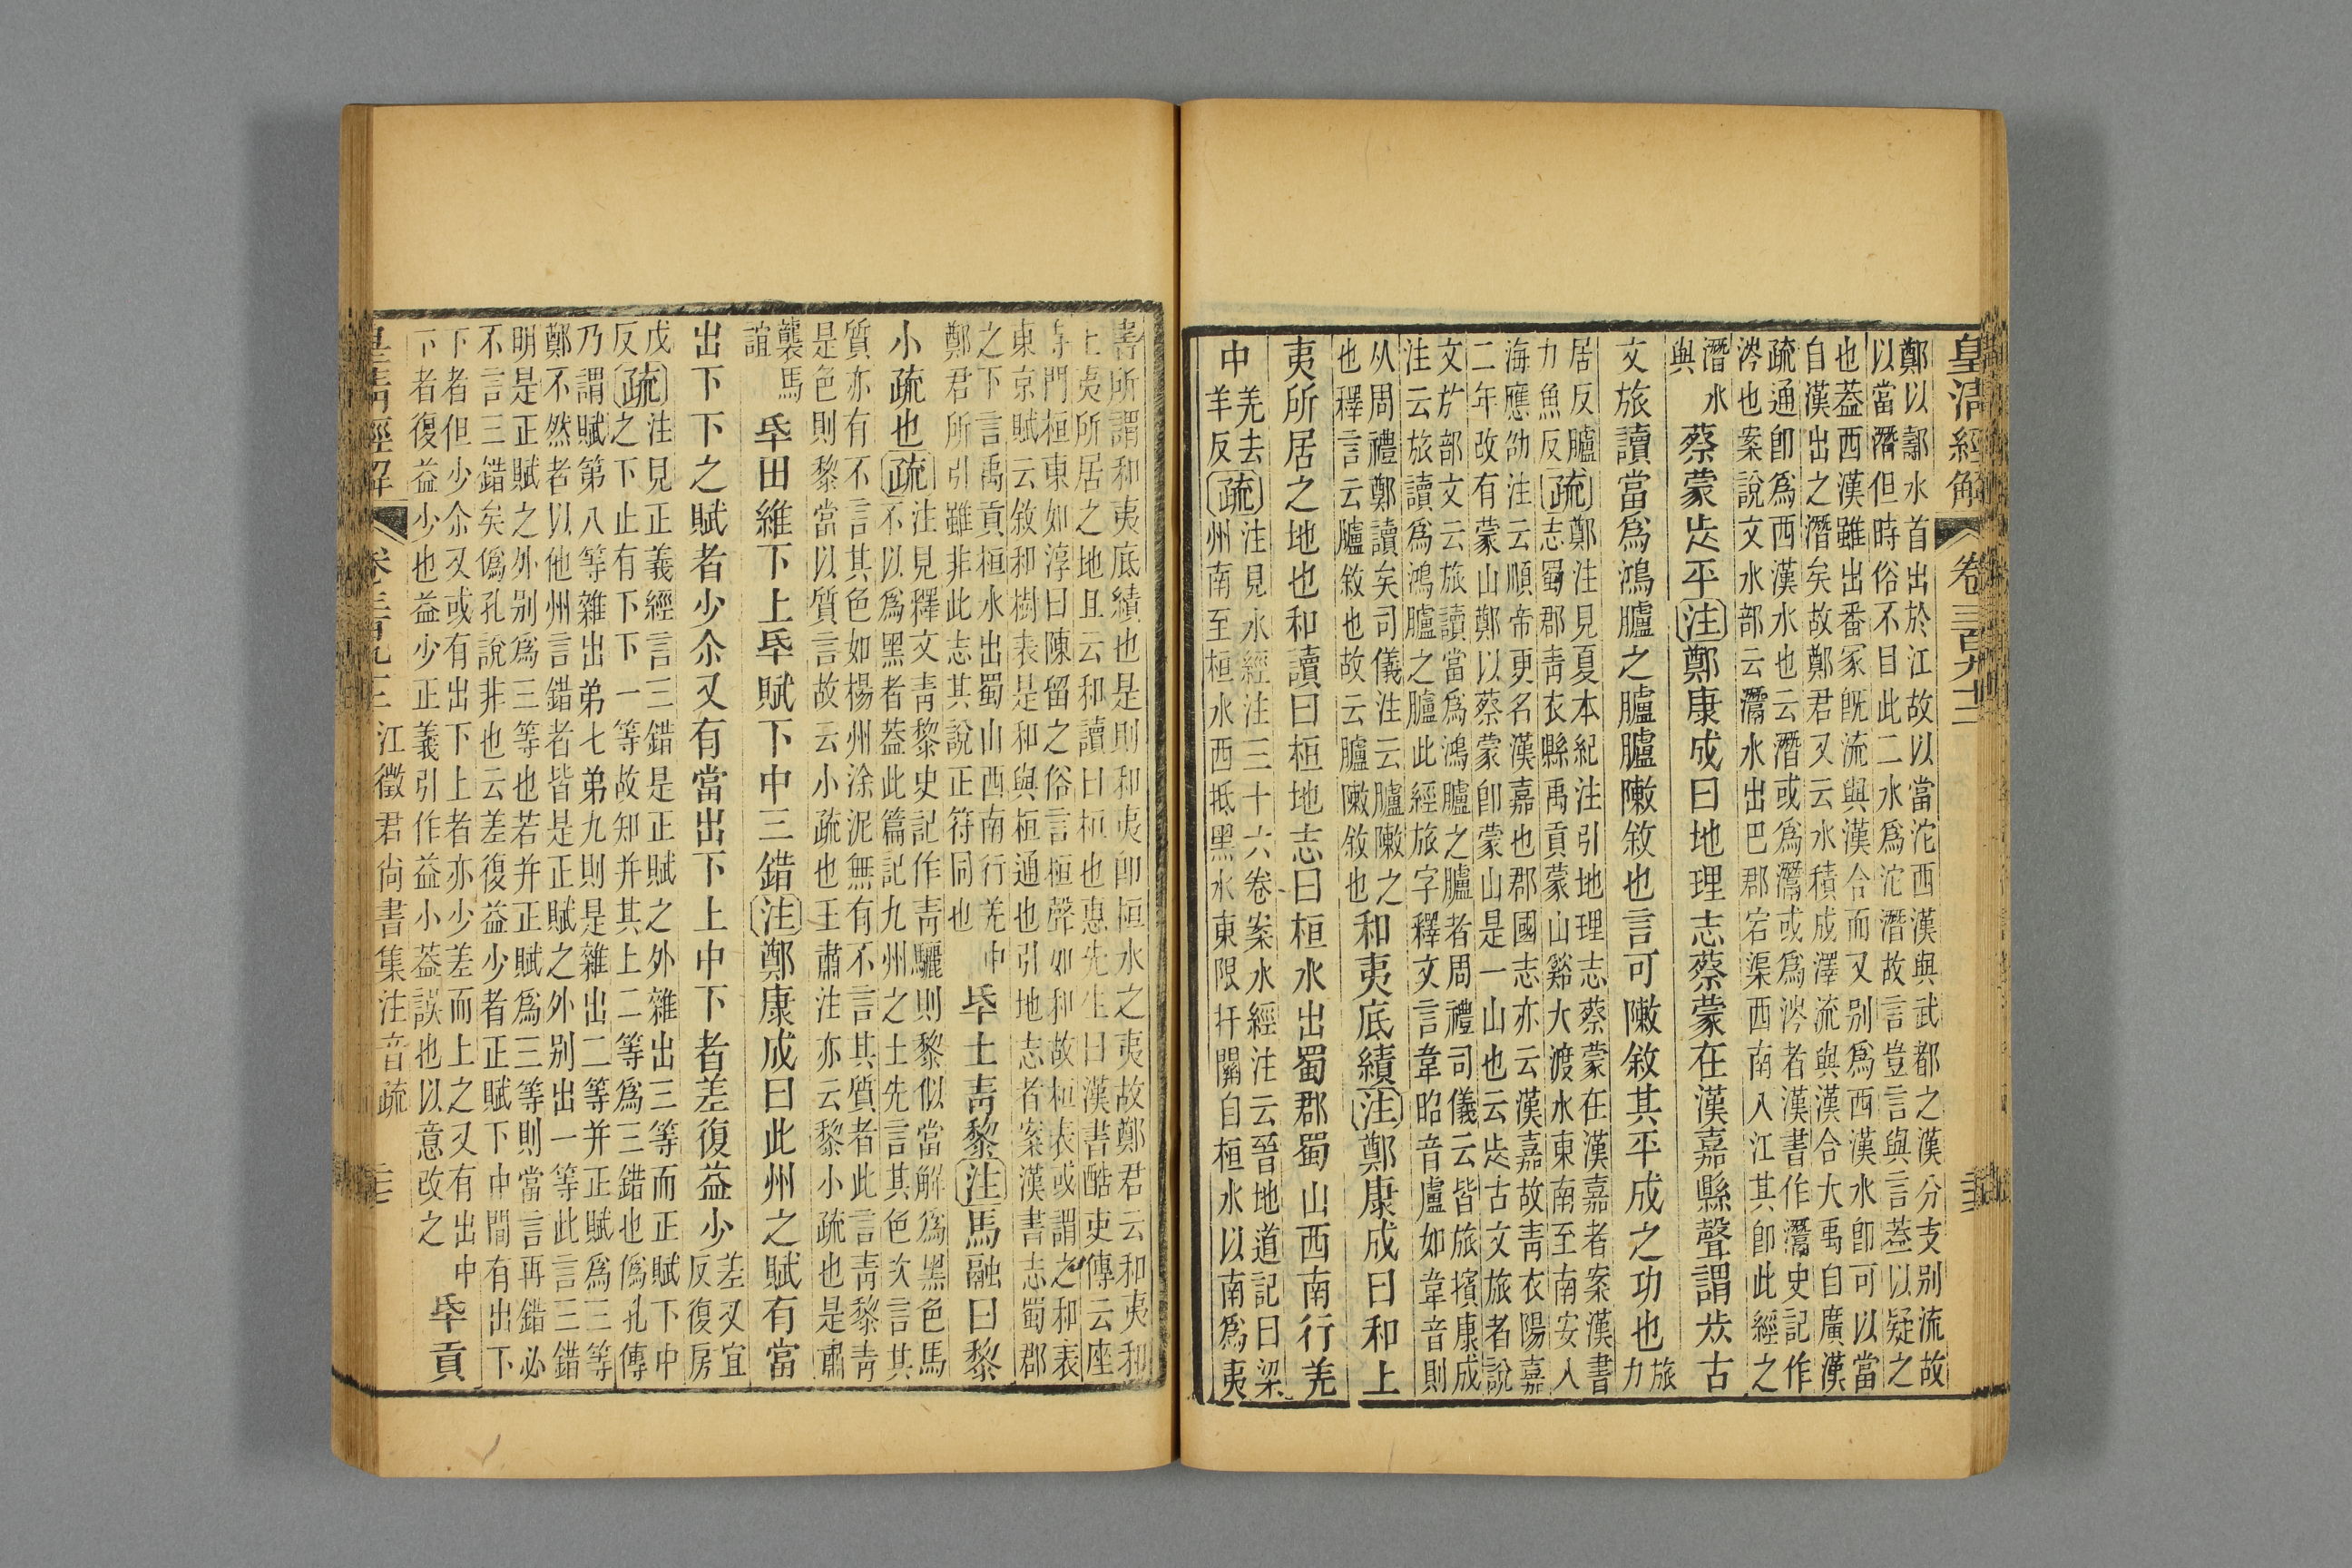 皇清經解 卷三百九十二
鄭以鄩水首出於江故以當沱西漢與武都之漢分支别流故
以當潛但時俗不目此二水爲沱潛故言豈言與言葢以疑之
也葢西漢雖出番冢旣流與漢合而又别爲西漢水卽可以當
自漢出之潛矣故鄭君又云水積成澤流與漢合大禹自廣漢
疏通卽爲西漢水也云潛或爲灊或爲涔者漢書作灊史記作
涔也案說文水部云灊水出巴郡宕渠西南入江其卽此經之
潛水
與
蔡蒙𣥠平注鄭康成曰地理志蔡蒙在漢嘉縣聲謂𣥠古
文旅讀當爲鴻臚之臚臚敶敘也言可敶敘其平成之功也旅
力
居反臚
力魚反
疏鄭注見夏本紀注引地理志蔡蒙在漢嘉者案漢書
志蜀郡靑衣縣禹貢蒙山谿大渡水東南至南安入
海應劭注云順帝更名漢嘉也郡國志亦云漢嘉故靑衣陽嘉
二年改有蒙山鄭以蔡蒙卽蒙山是一山也云𣥠古文旅者說
文㫃部文云旅讀當爲鴻臚之臚者周禮司儀云皆旅擯康成
注云旅讀爲鴻臚之臚此經旅字釋文言韋昭音盧如韋音則
从周禮鄭讀矣司儀注云臚敶之
也釋言云臚敘也故云臚敶敘也
和夷底績注鄭康成曰和上
夷所居之地也和讀曰桓地志曰桓水出蜀郡蜀山西南行羌
中
羌去
羊反
疏注見水經注三十六卷案水經注云晉地道記曰梁
州南至桓水西抵黑水東限扞關自桓水以南爲夷
書所謂和夷底績也是則和夷卽桓水之夷故鄭君云和夷和
上夷所居之地且云和讀曰桓也惠先生曰漢書酷吏傳云座
寺門桓東如淳曰陳留之俗言桓聲如和故桓表或謂之和表
東京賦云敘和樹表是和與桓通也引地志者案漢書志蜀郡
之下言禹貢桓水出蜀山西南行羌中
鄭君所引雖非此志其說正符同也
氒土靑黎注馬融曰黎
小疏也疏注見釋文靑黎史記作靑驪則黎似當解爲黑色馬
不以爲黑者葢此篇記九州之土先言其色次言其
質亦有不言其色如楊州涂泥無有不言其質者此言靑黎靑
是色則黎當以質言故云小疏也王肅注亦云黎小疏也是肅
襲馬
誼
氒田維下上氒賦下中三錯注鄭康成曰此州之賦有當
出下下之賦者少尒又有當出下上中下者差復益少差叉宜
反復房
戊
反疏注見正義經言三錯是正賦之外雜出三等而正賦下中
之下止有下下一等故知并其上二等爲三錯也僞孔傳
乃謂賦第八等雜出弟七弟九則是雜出二等并正賦爲三等
鄭不然者以他州言錯者皆是正賦之外别出一等此言三錯
明是正賦之外别爲三等也若并正賦爲三等則當言再錯必
不言三錯矣僞孔說非也云差復益少者正賦下中閒有出下
下者但少尒又或有出下上者亦少差而上之又有出中
下者復益少也益少正義引作益小葢誤也以意改之
氒貢
皇淸經解 卷三百九 三江徵君尙書集注音疏